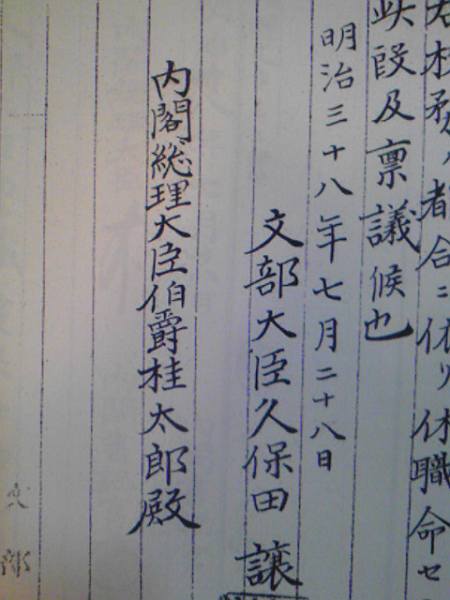 務ノ都合ニ依リ休職命セ
此段及禀議候也
明治三十八年七月二十八日
文部大臣久保田譲
内閣総理大臣伯爵桂太郎殿